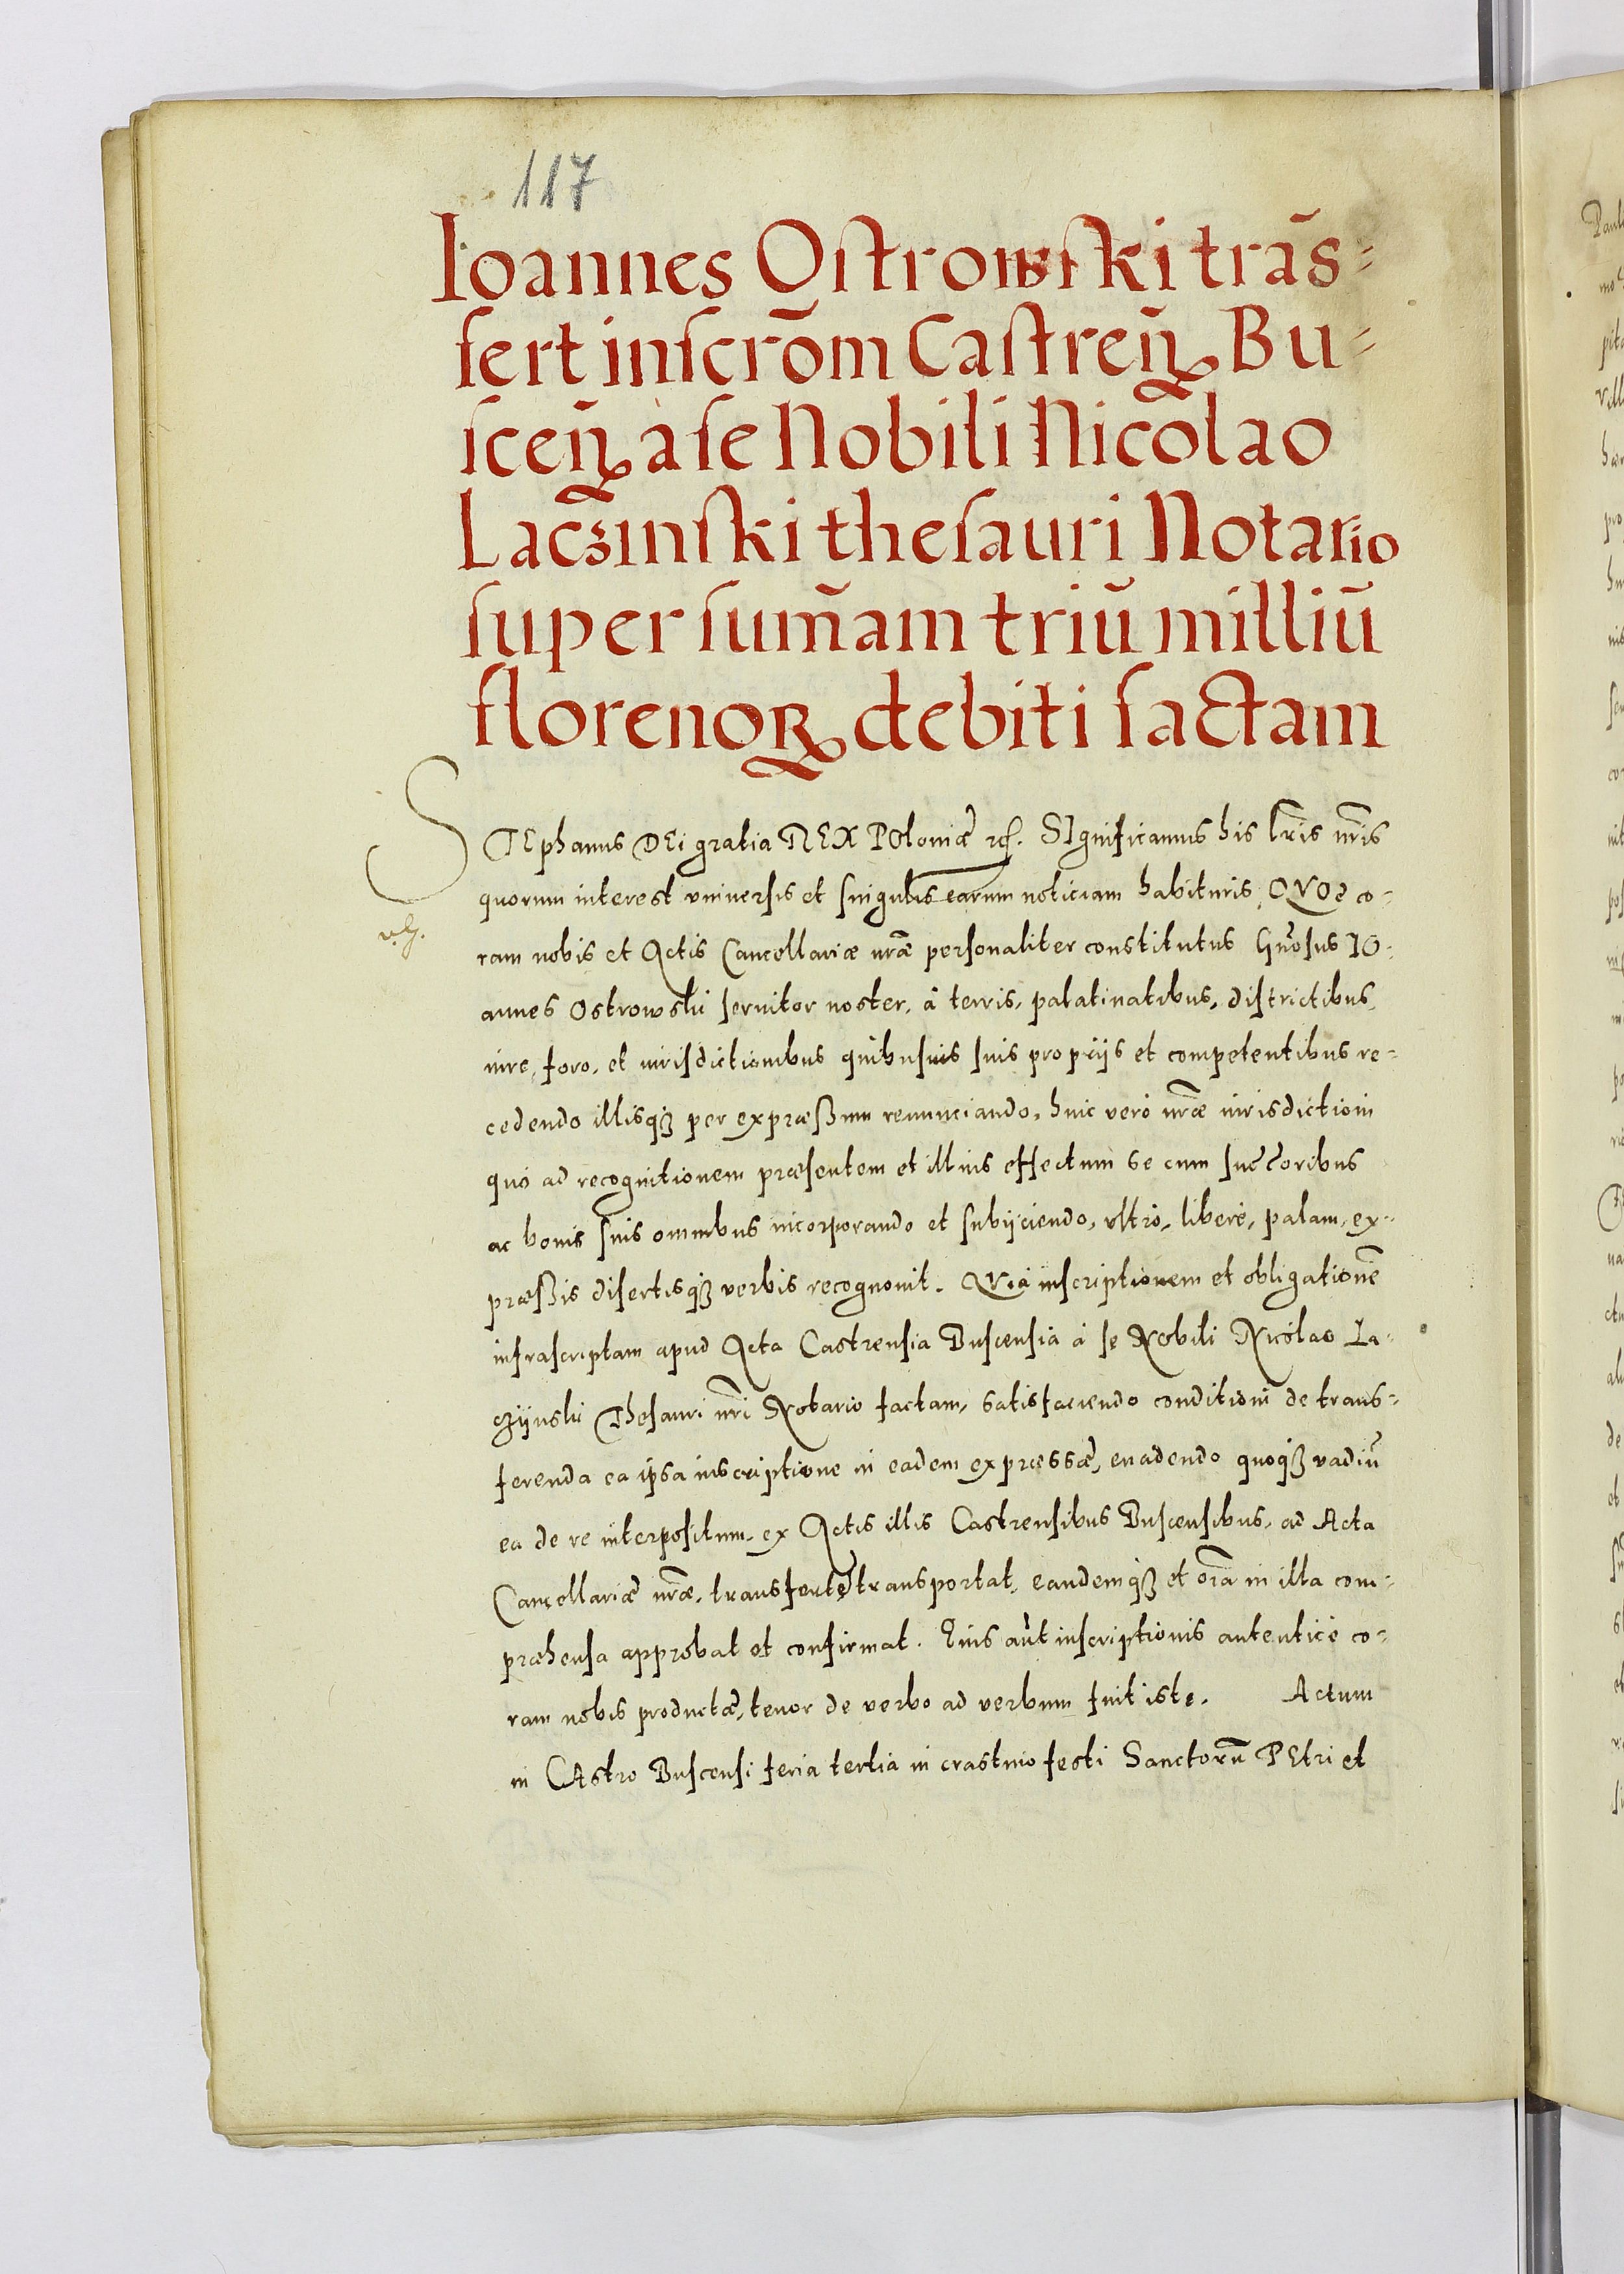 117
Ioannes Ostrowski trãs=
fert inscrõm Castreñ. Bu=
sceñ. a se Nobili Nicolao
Laczinski thesauri Notario
super sum̃am triũ milliũ
florenoꝝ debiti factam
STEphanus DEi gratia REX POloniæ etc. SIgnificamus his lr̃is nr̃is
quorum interest vniuersis et singulis earum noticiam habituris, QVOd co=
ram nobis et Actis Cancellariæ nr̃æ personaliter constitutus Gñosus IO=
annes Ostrowski seruitor noster, à terris, palatinatibus, districtibus,
iure, foro, et iurisdictionibus quibusuis suis proprijs et competentibus re=
cedendo illisqȝ per expræßum renunciando, huic verò nr̃æ iurisdictioni
quò ad recognitionem præsentem et illius effectum se cum succ̃oribus
ac bonis suis omnibus incorporando et subijciendo, vltrò, liberè, palam, ex=
præßis disertisqȝ verbis recognouit. QVià inscriptionem et obligationẽ
infrascriptam apud Acta Castrensia Buscensia à se Nobili Nicolao La=
czijnski Thesauri nr̃i Notario factam, satisfaciendo conditioni de trans=
ferenda ea ipsa inscriptione in eadem expræssæ, euadendo quoqȝ vadiũ
ea de re interpositum, ex Actis illis Castrensibus Buscensibus, ad Acta
Cancellariæ nr̃æ, transfert et transportat, eandemqȝ et oĩa in illa com=
præhensa approbat et confirmat. Eius aũt inscriptionis autenticè co=
ram nobis productæ, tenor de verbo ad verbum fuit iste. Actum
in CAstro Buscensi feria tertia in crastino festi Sanctorũ PEtri et